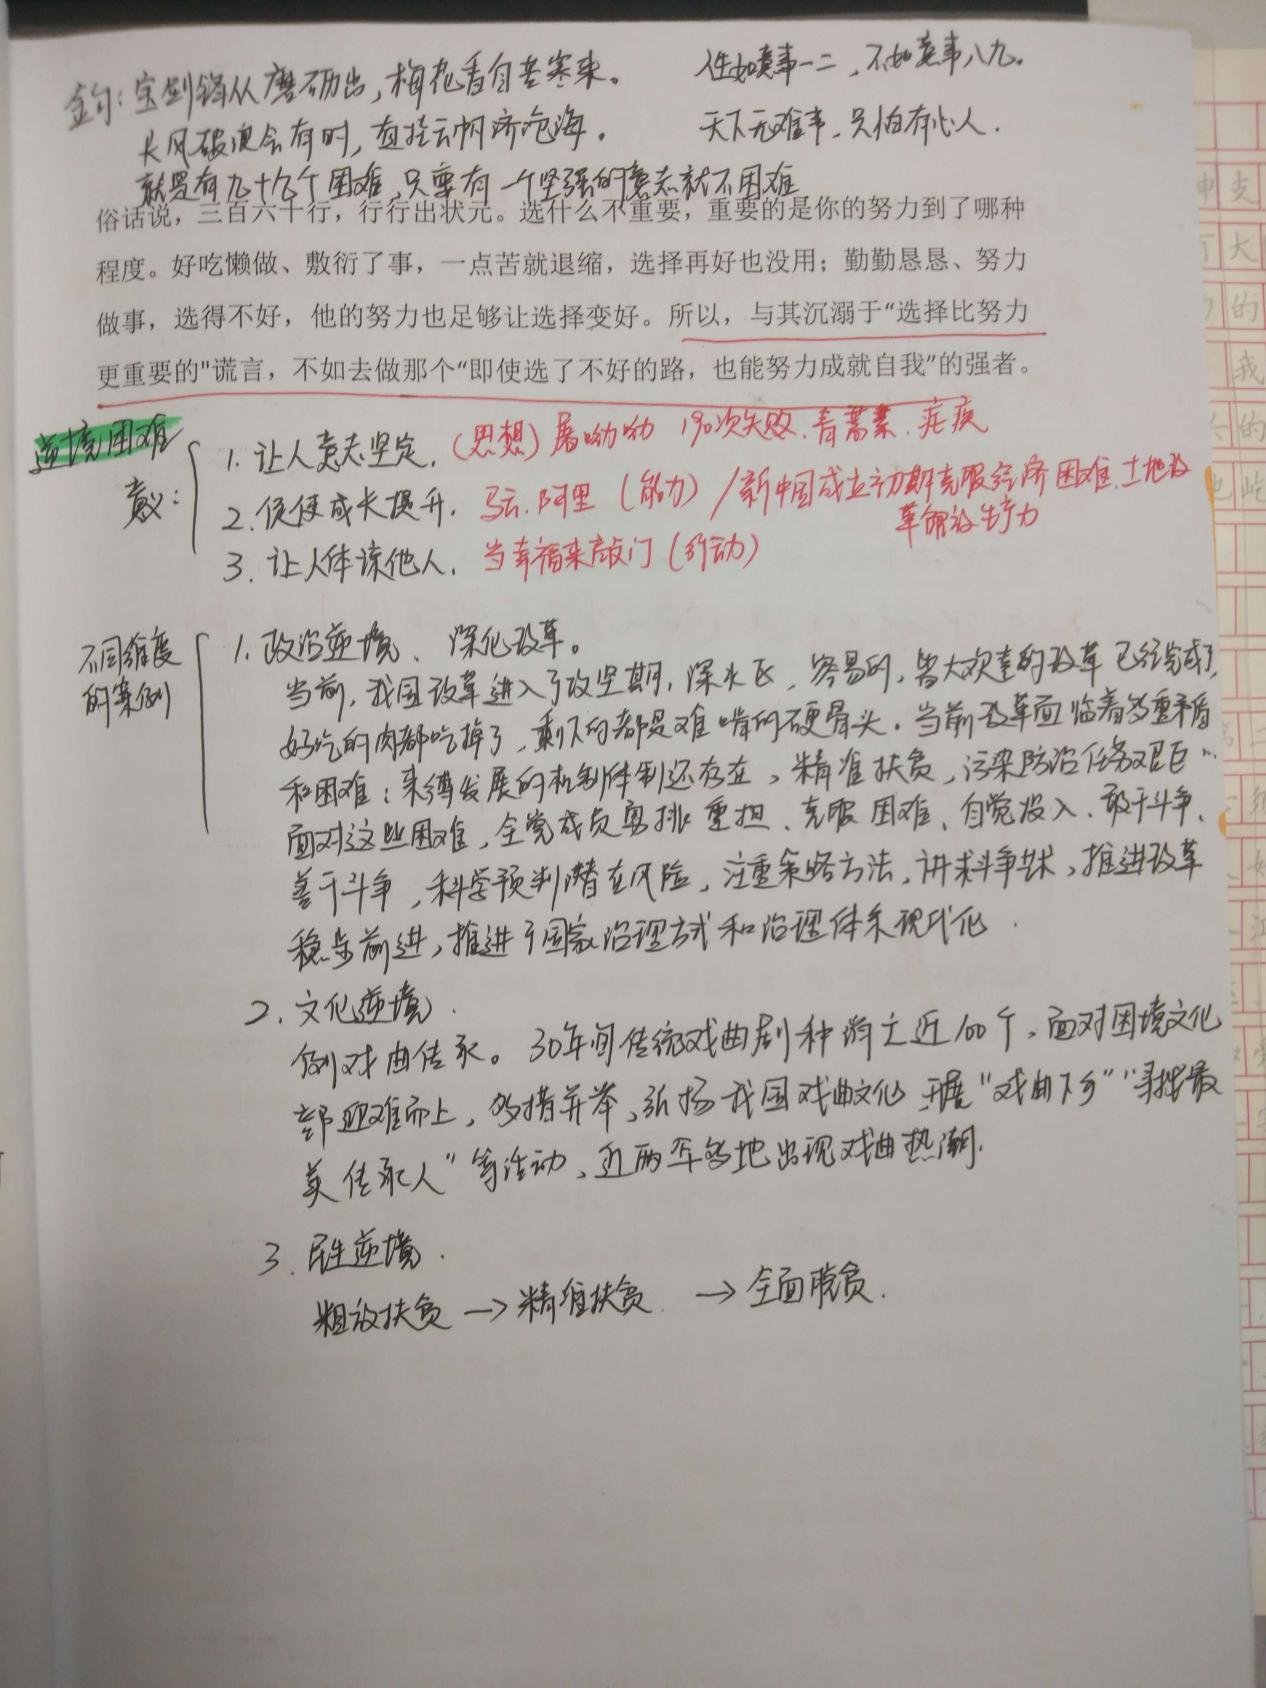 金句：宝剑锋从磨砺出，梅花香自苦寒来。 人生如意事一二，不如意事八九。
长风破浪会有时，直挂云帆济沧海。 天下无难事，只怕有心人.
就是有九十九个困难，只要有一个坚强的意志就不困难
俗话说，三百六十行，行行出状元。选什么不重要，重要的是你的努力到了哪种
程度。好吃懒做、敷衍了事，一点苦就退缩，选择再好也没用；勤勤恳恳、努力
做事，选得不好，他的努力也足够让选择变好。所以，与其沉溺于“选择比努力
更重要的"谎言，不如去做那个“即使选了不好的路，也能努力成就自我”的强者。
逆境困难
意义：
1. 让人意志坚定. （思想）屠呦呦 190次失败.青蒿素.疟疾
2. 促使成长提升. 马云.阿里（能力）/新中国成立初期克服经济困难.土地改
革解放生产力
3. 让人体谅他人. 当幸福来敲门（行动）
不同维度
的案例
1. 政治逆境、深化改革。
当前，我国改革进入了攻坚期，深水区，容易的，皆大欢喜的改革已经完成了，
好吃的肉都吃掉了，剩下的都是难啃的硬骨头.当前改革面临着多重矛盾
和困难：束缚发展的机制体制还存在，精准扶贫，污染防治任务艰巨…
面对这些困难，全党成员勇挑重担、克服困难、自觉投入、敢于斗争、
善于斗争，科学预判潜在风险，注重策略方法，讲求斗争艺术，推进改革
稳步前进，推进了国家治理方式和治理体系现代化.
2. 文化逆境.
例戏曲传承。30年间传统戏曲剧种消亡近100个，面对困境文化
部迎难而上，多措并举，弘扬我国戏曲文化 开展“戏曲下乡”“寻找最
美传承人”等活动，近两年多地出现戏曲热潮.
3. 民生逆境.
粗放扶贫→精准扶贫.→全面脱贫.
神 支
大
的
我
的
屹